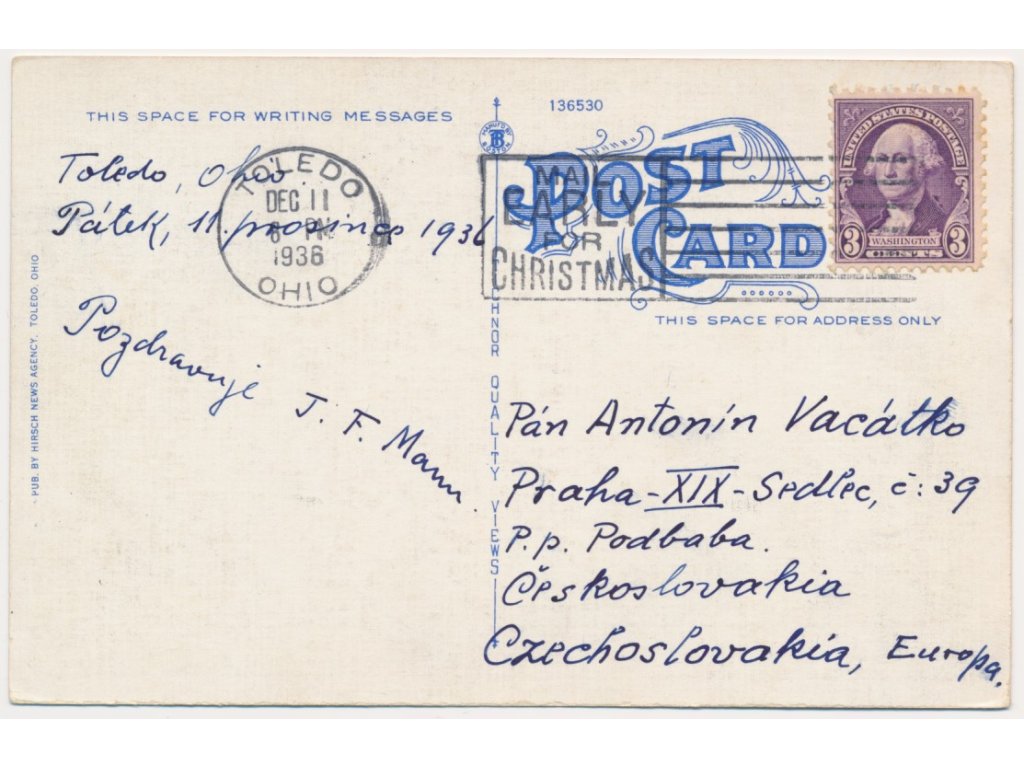 THIS SPACE FOR WRITING MESSAGES
136530
MANUF'D BY
TB
BOSTON
POST CARD
UNITED STATES POSTAGE
3 WASHINGTON 3
CENTS
TOLEDO
DEC 11
6 PM
1936
OHIO
MAIL
EARLY
FOR
CHRISTMAS
Toledo, Ohio.
Pátek, 11. prosince 1936
Pozdravuje
J. F. Mann.
THIS SPACE FOR ADDRESS ONLY
Pán Antonín Vacátko
Praha-XIX-Sedlec, č: 39
P.p. Podbaba.
Českoslovakia
Czechoslovakia, Europa.
PUB. BY HIRSCH NEWS AGENCY, TOLEDO, OHIO
HNOR QUALITY VIEWS